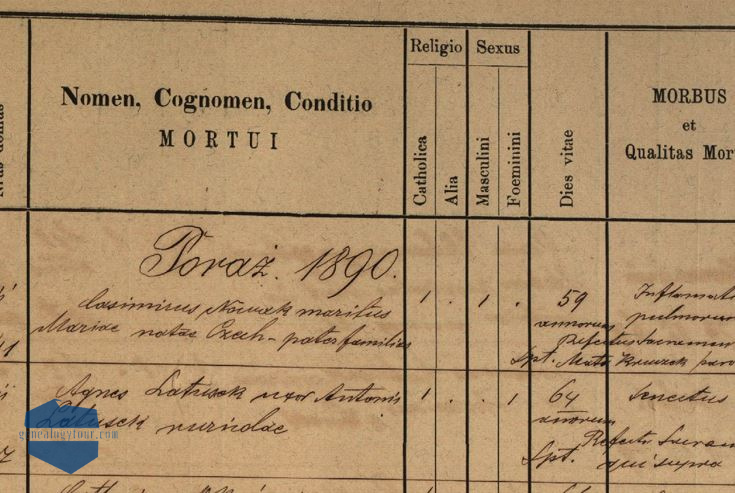 Religio Sexus
Nomen, Cognomen, Conditio
MORTUI
Catholica
Alia
Masculini
Foeminini
Dies vitae
MORBUS
et
Qualitas Mor
Nrus domus
Poraż. 1890.
Casimirus Nowak maritus
Mariae natae Czech - paterfamilias
1 . 1 .
59
annorum
Inflamati
pulmonum
Refectus Sacramen
Spt. Math Kruczek paro
Agnes Latusek uxor Antonii
Latusek
1 . . 1
64
annorum
Senectus
Refecta Sacram
Spt. qui supra
genealogytour.com